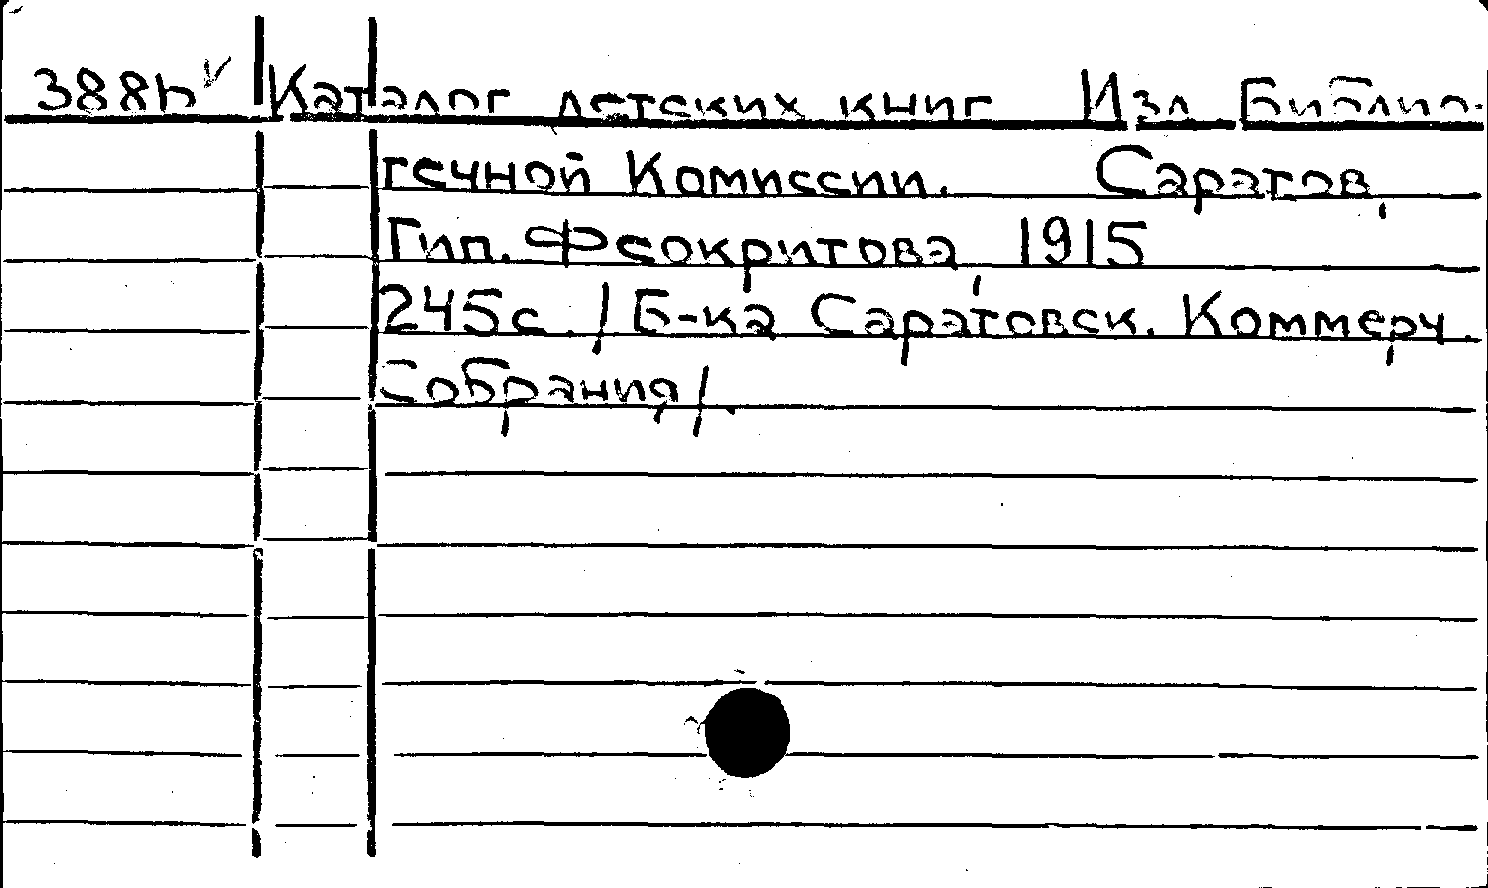 388h Каталог детских книг Изд. Библио-
течной Комиссии. Саратов,
Тип. Феокритова, 1915
245с. /Б-ка Саратовск. Коммерч.
Собрания/.